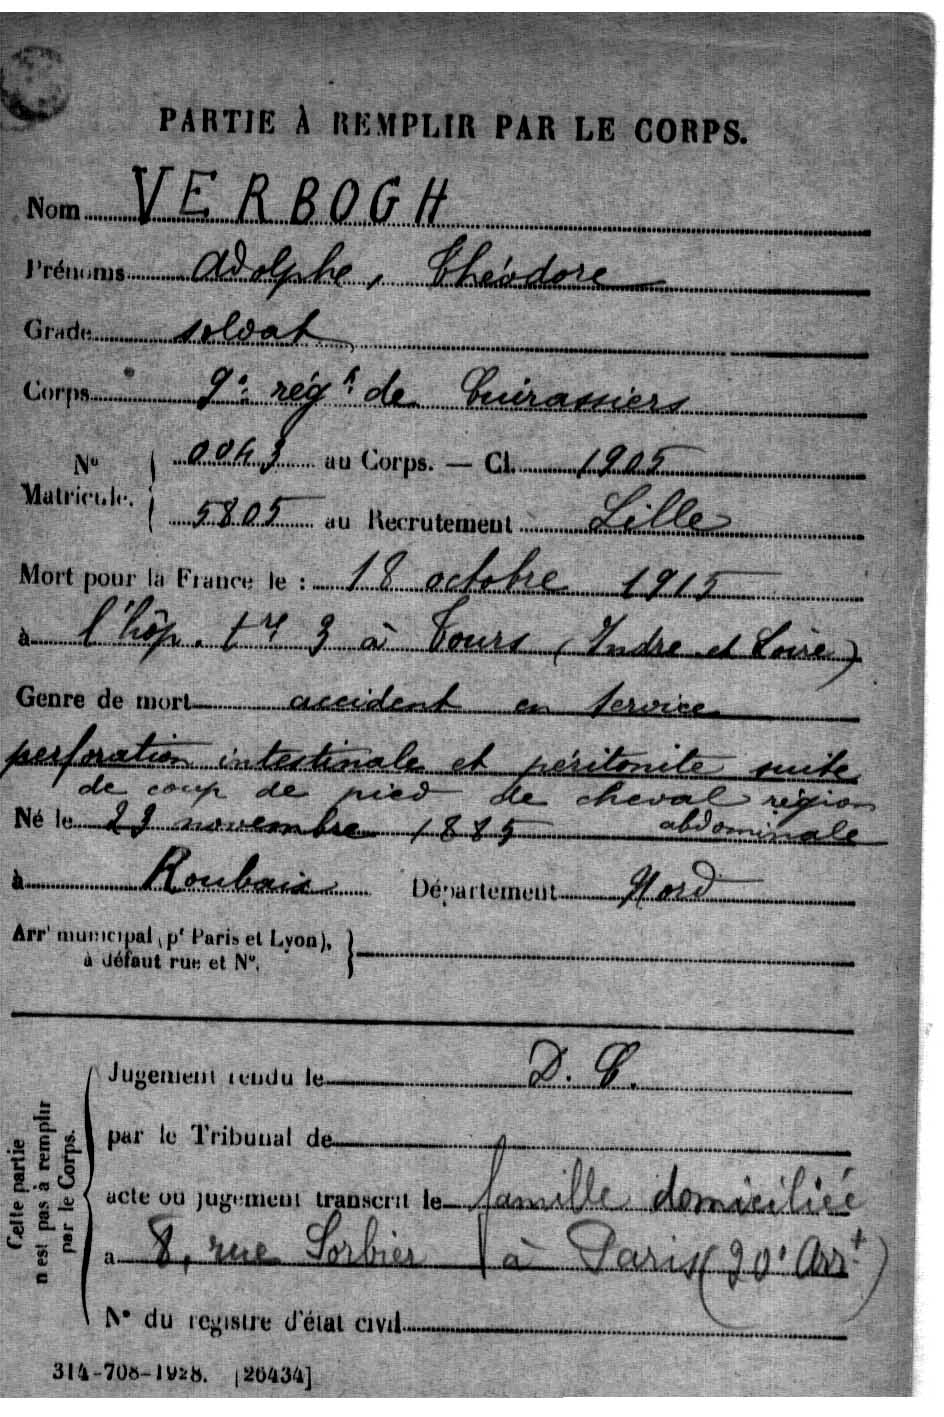 PARTIE À REMPLIR PAR LE CORPS.
Nom VERBOGH
Prénoms Adolphe, Théodore
Grade soldat
Corps 9e régt de Cuirassiers
No Matricule. 0043 au Corps. — Cl. 1905
5805 au Recrutement Lille
Mort pour la France le : 18 octobre 1915
à l'hôp. tre 3 à Tours (Indre et Loire)
Genre de mort accident en service
perforation intestinale et péritonite suite
de coup de pied de cheval région
abdominale
Né le 23 novembre 1885
à Roubaix Département Nord
Arrt municipal (pr Paris et Lyon),
à défaut rue et No.
Cette partie
n'est pas à remplir
par le Corps.
Jugement rendu le D. C.
par le Tribunal de
acte ou jugement transcrit le famille domiciliée
a 8, rue Sorbier à Paris (20e Arrt)
No du registre d'état civil
314-708-1928. [26434]